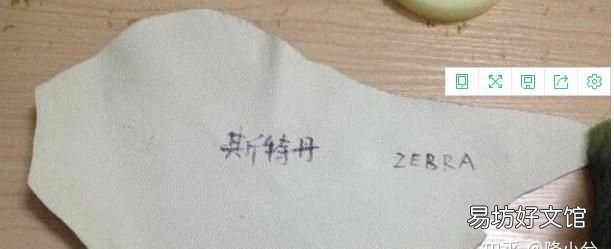 斯特丹 ZEBRA
易坊好文馆
知乎 @隆小兮